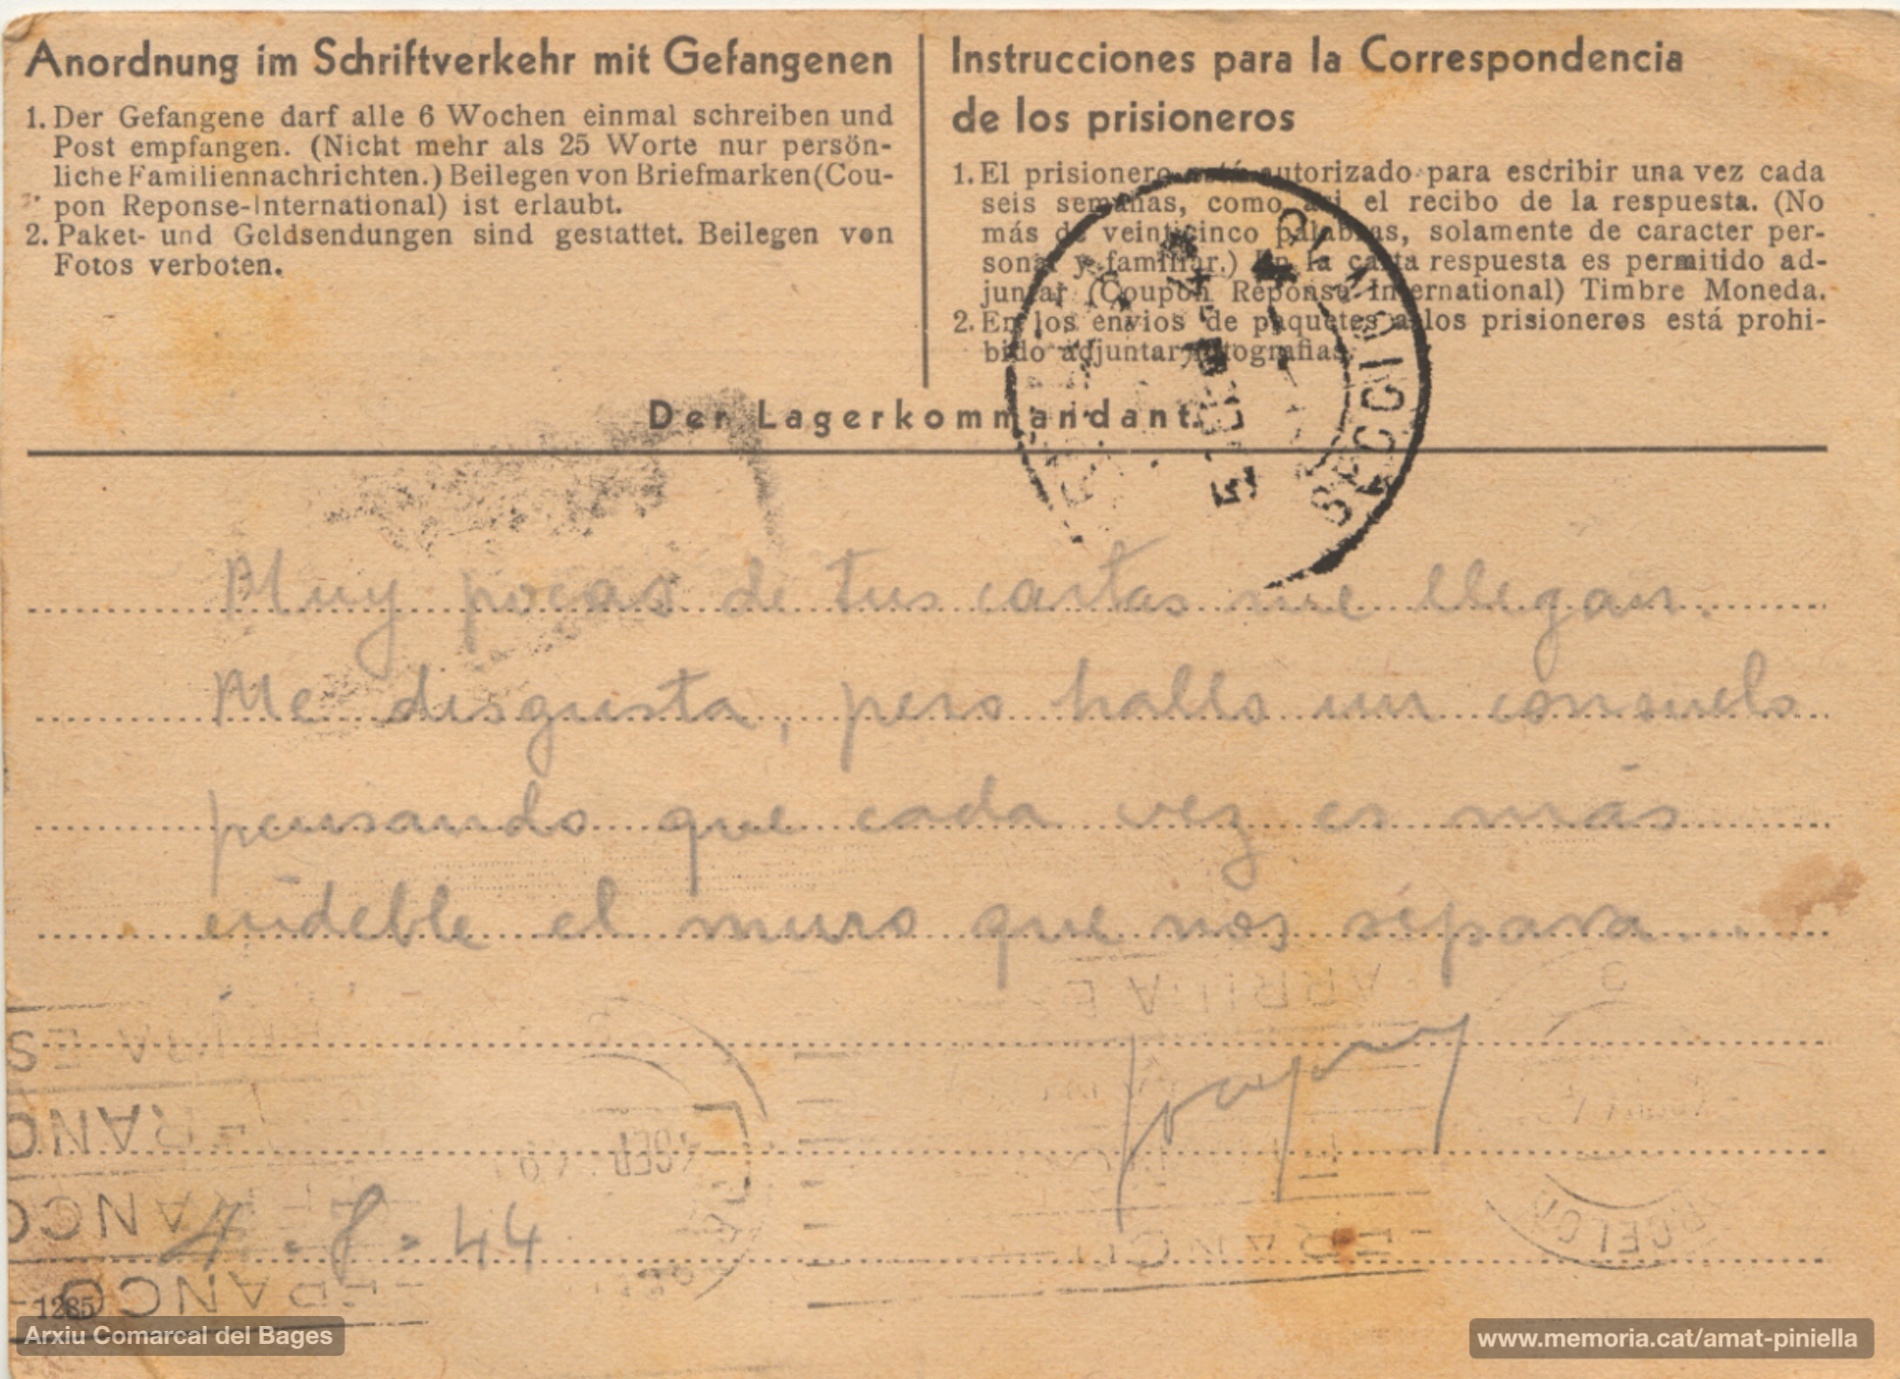 Anordnung im Schriftverkehr mit Gefangenen
1. Der Gefangene darf alle 6 Wochen einmal schreiben und
Post empfangen. (Nicht mehr als 25 Worte nur persön-
liche Familiennachrichten.) Beilegen von Briefmarken (Cou-
pon Reponse-International) ist erlaubt.
2. Paket- und Geldsendungen sind gestattet. Beilegen von
Fotos verboten.
Instrucciones para la Correspondencia
de los prisioneros
1. El prisionero está autorizado para escribir una vez cada
seis semanas, como asi el recibo de la respuesta. (No
más de veinticinco palabras, solamente de caracter per-
sonal y familiar.) En la carta respuesta es permitido ad-
juntar (Coupon Reponse International) Timbre Moneda.
2. En los envios de paquetes a los prisioneros está prohi-
bido adjuntar fotografias.
Der Lagerkommandant.
SECCION
Muy pocas de tus cartas me llegan.
Me disgusta, pero hallo un consuelo
pensando que cada vez es más
endeble el muro que nos separa...
4-8-44
FRANCO
FRANCO
FRANCO
1285
Arxiu Comarcal del Bages
www.memoria.cat/amat-piniella